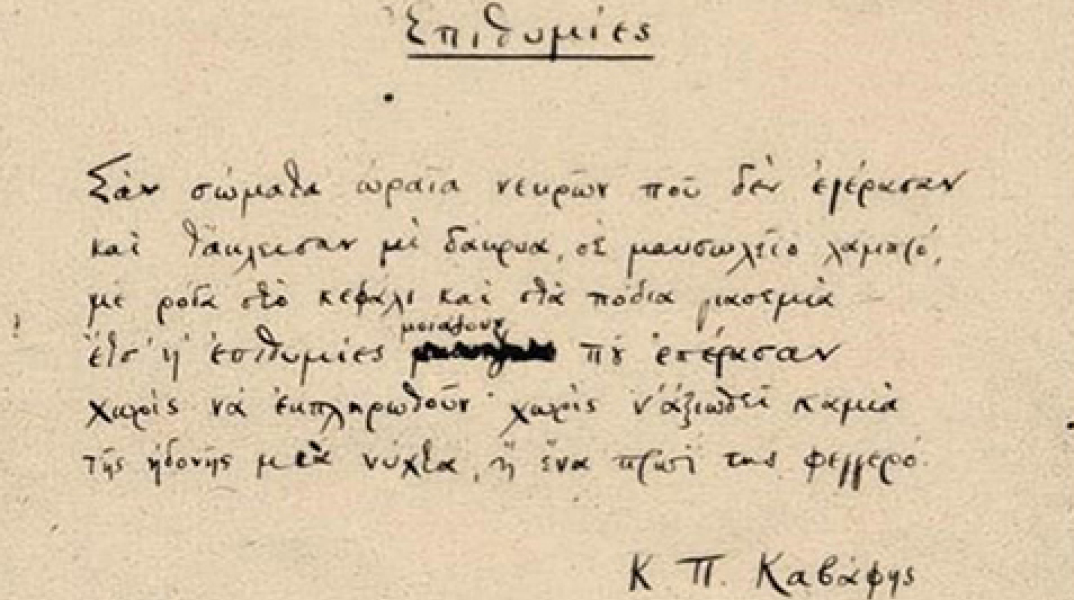 Ἐπιθυμίες
Σὰν σώματα ὡραῖα νεκρῶν ποῦ δὲν ἐγέρασαν
καὶ τἄκλεισαν, μὲ δάκρυα, σὲ μαυσωλεῖο λαμπρό,
μὲ ρόδα στὸ κεφάλι καὶ στὰ πόδια γιασεμιὰ
ἔτσ' ἡ ἐπιθυμίες μοιάζουν ποῦ ἐπέρασαν
χωρὶς νὰ ἐκπληρωθοῦν· χωρὶς ν' ἀξιωθεῖ καμιὰ
τῆς ἡδονῆς μιὰ νύχτα, ἢ ἕνα πρωῒ της φεγγερό.
Κ. Π. Καβάφης